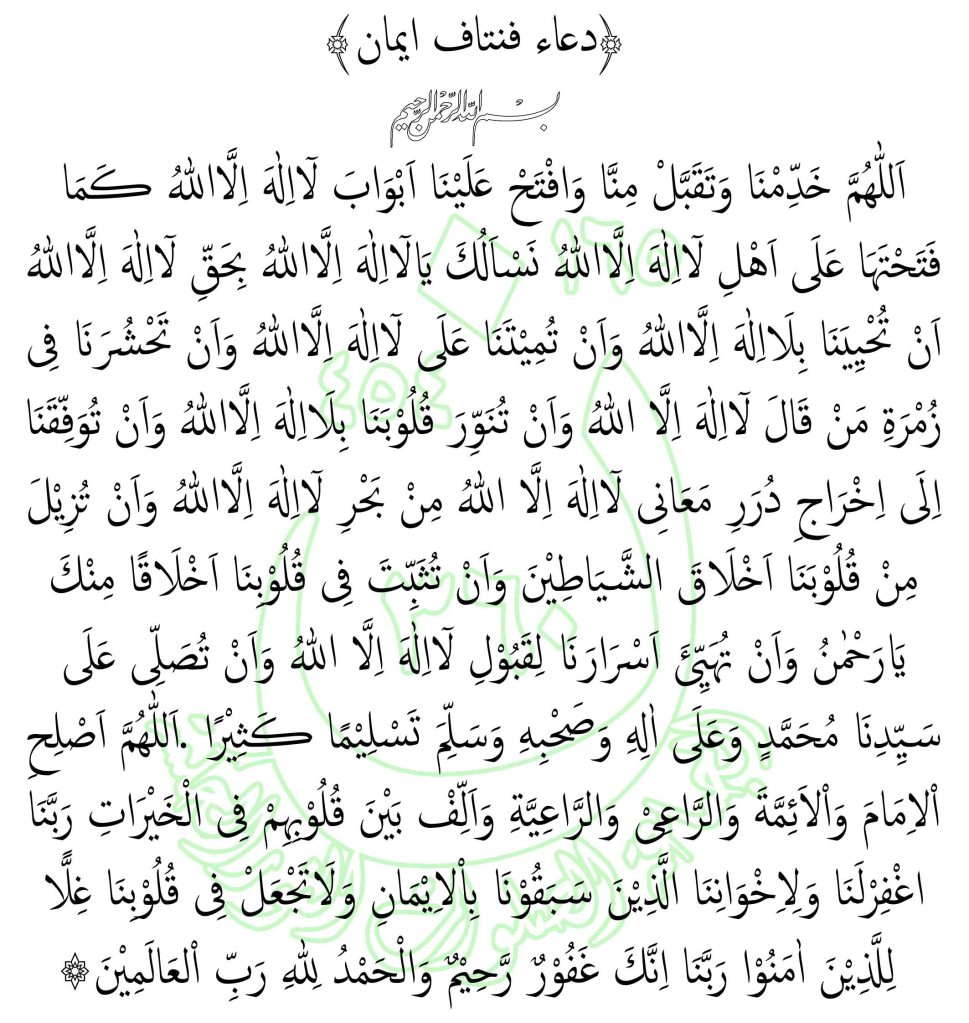 ﴿دعاء فنتاف ايمان﴾
بسم الله الرحمن الرحيم
اَللّٰهُمَّ خَدِّمْنَا وَتَقَبَّلْ مِنَّا وَافْتَحْ عَلَيْنَا اَبْوَابَ لَآاِلٰهَ اِلَّااللهُ كَمَا
فَتَحْتَهَا عَلَى اَهْلِ لَآاِلٰهَ اِلَّااللهُ نَسْاَلُكَ يَالَآاِلٰهَ اِلَّااللهُ بِحَقِّ لَآاِلٰهَ اِلَّااللهُ
اَنْ تُحْيِيَنَا بِلَااِلٰهَ اِلَّااللهُ وَاَنْ تُمِيْتَنَا عَلَى لَآاِلٰهَ اِلَّااللهُ وَاَنْ تَحْشُرَنَا فِى
زُمْرَةِ مَنْ قَالَ لَآاِلٰهَ اِلَّا اللهُ وَاَنْ تُنَوِّرَ قُلُوْبَنَا بِلَااِلٰهَ اِلَّااللهُ وَاَنْ تُوَفِّقَنَا
اِلَى اِخْرَاجِ دُرَرِ مَعَانِى لَآاِلٰهَ اِلَّا اللهُ مِنْ بَحْرِ لَآاِلٰهَ اِلَّااللهُ وَاَنْ تُزِيْلَ
مِنْ قُلُوْبَنَا اَخْلَاقَ الشَّيَاطِيْنَ وَاَنْ تُثَبِّتَ فِى قُلُوْبِنَا اَخْلَاقًا مِنْكَ
يَارَحْمٰنُ وَاَنْ تُهَيِّئَ اَسْرَارَنَا لِقَبُوْلِ لَآاِلٰهَ اِلَّا اللهُ وَاَنْ تُصَلِّى عَلَى
سَيِّدِنَا مُحَمَّدٍ وَعَلَى اٰلِهِ وَصَحْبِهِ وَسَلِّمَ تَسْلِيْمًا كَثِيْرًا .اَللّٰهُمَّ اَصْلِحِ
اْلاِمَامَ وَاْلاَئِمَّةَ وَالرَّاعِىْ وَالرَّاعِيَّةِ وَاَلِّفْ بَيْنَ قُلُوْبِهِمْ فِى الْخَيْرَاتِ رَبَّنَا
اغْفِرْلَنَا وَلِاِخْوَانِنَا الَّذِيْنَ سَبَقُوْنَا بِاْلاِيْمَانِ وَلَاتَجْعَلْ فِى قُلُوْبِنَا غِلًّا
لِلَّذِيْنَ اٰمَنُوْا رَبَّنَا اِنَّكَ غَفُوْرٌ رَّحِيْمٌ وَالْحَمْدُ لِلهِ رَبِّ اْلعَالَمِيْنَ
٤٥٤
٣٦٠